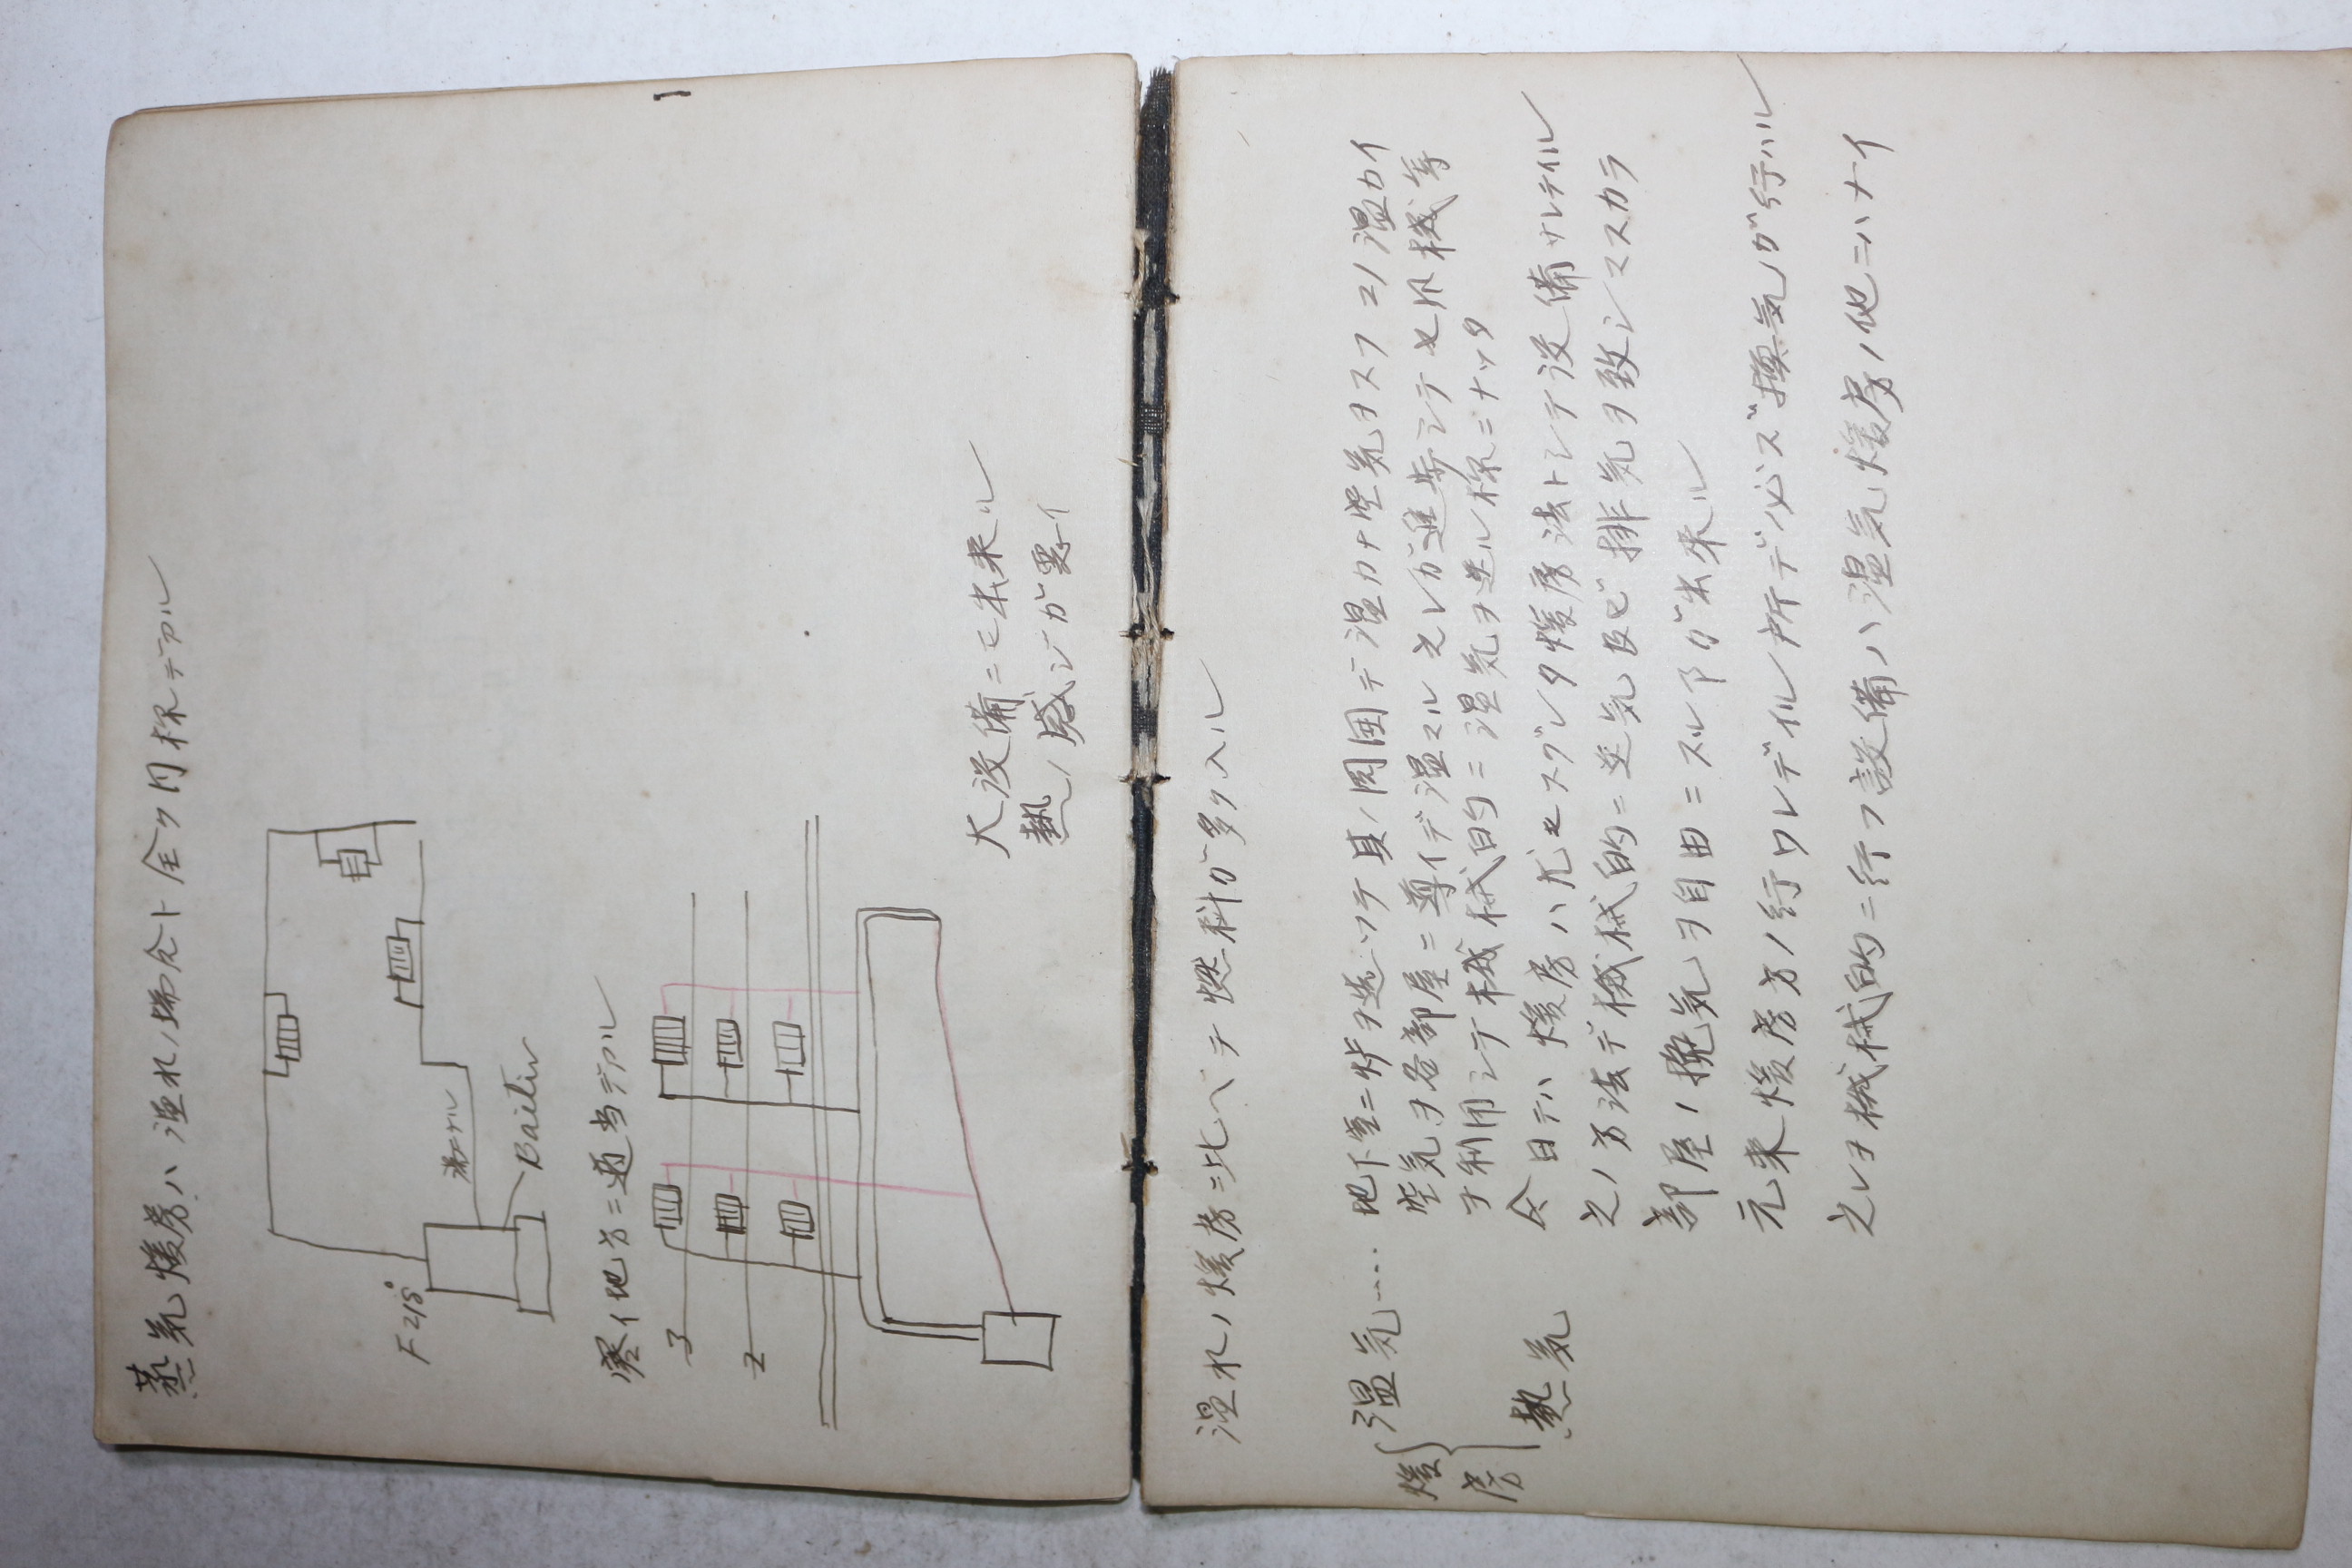 蒸気煖房ハ温水ノ場合ト全ク同様デアル
F218°
湯ニナル
寒イ地方ニ適当デアル
3
2
大設備ニモ出来ル
熱ノ感ジガ悪イ
温水ノ煖房ニ比ベテ燃料ガ多ク入ル
煖房
温気…… 地下室ニ炉ヲ造ッテ其ノ周囲デ温カナ空気ヲスフコノ温カイ
空気ヲ各部屋ニ導イデ温マル之レガ進歩シテセン風機等
ヲ利用シテ機械的ニ温気ヲ送ル様ニナッタ
熱気 今日デハ煖房ハ尤モスグレタ煖房法トシテ設備サレテイル
之ノ方法デ機械的ニ送気及ビ排気ヲ致シマスカラ
部屋ノ換気ヲ自由ニスルヿガ出来ル
元来煖房方ノ行ワレデイル所デ必ズ換気ガ行ハル
之レヲ機械的ニ行フ設備ハ温気煖房ノ他ニハナイ